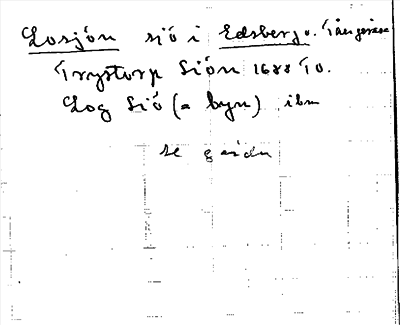 Losjön sjö i Edsberg o. Tångeråsa
Trystorp Siön 1688 TO.
Log Siö (a byn) ibm
se gården